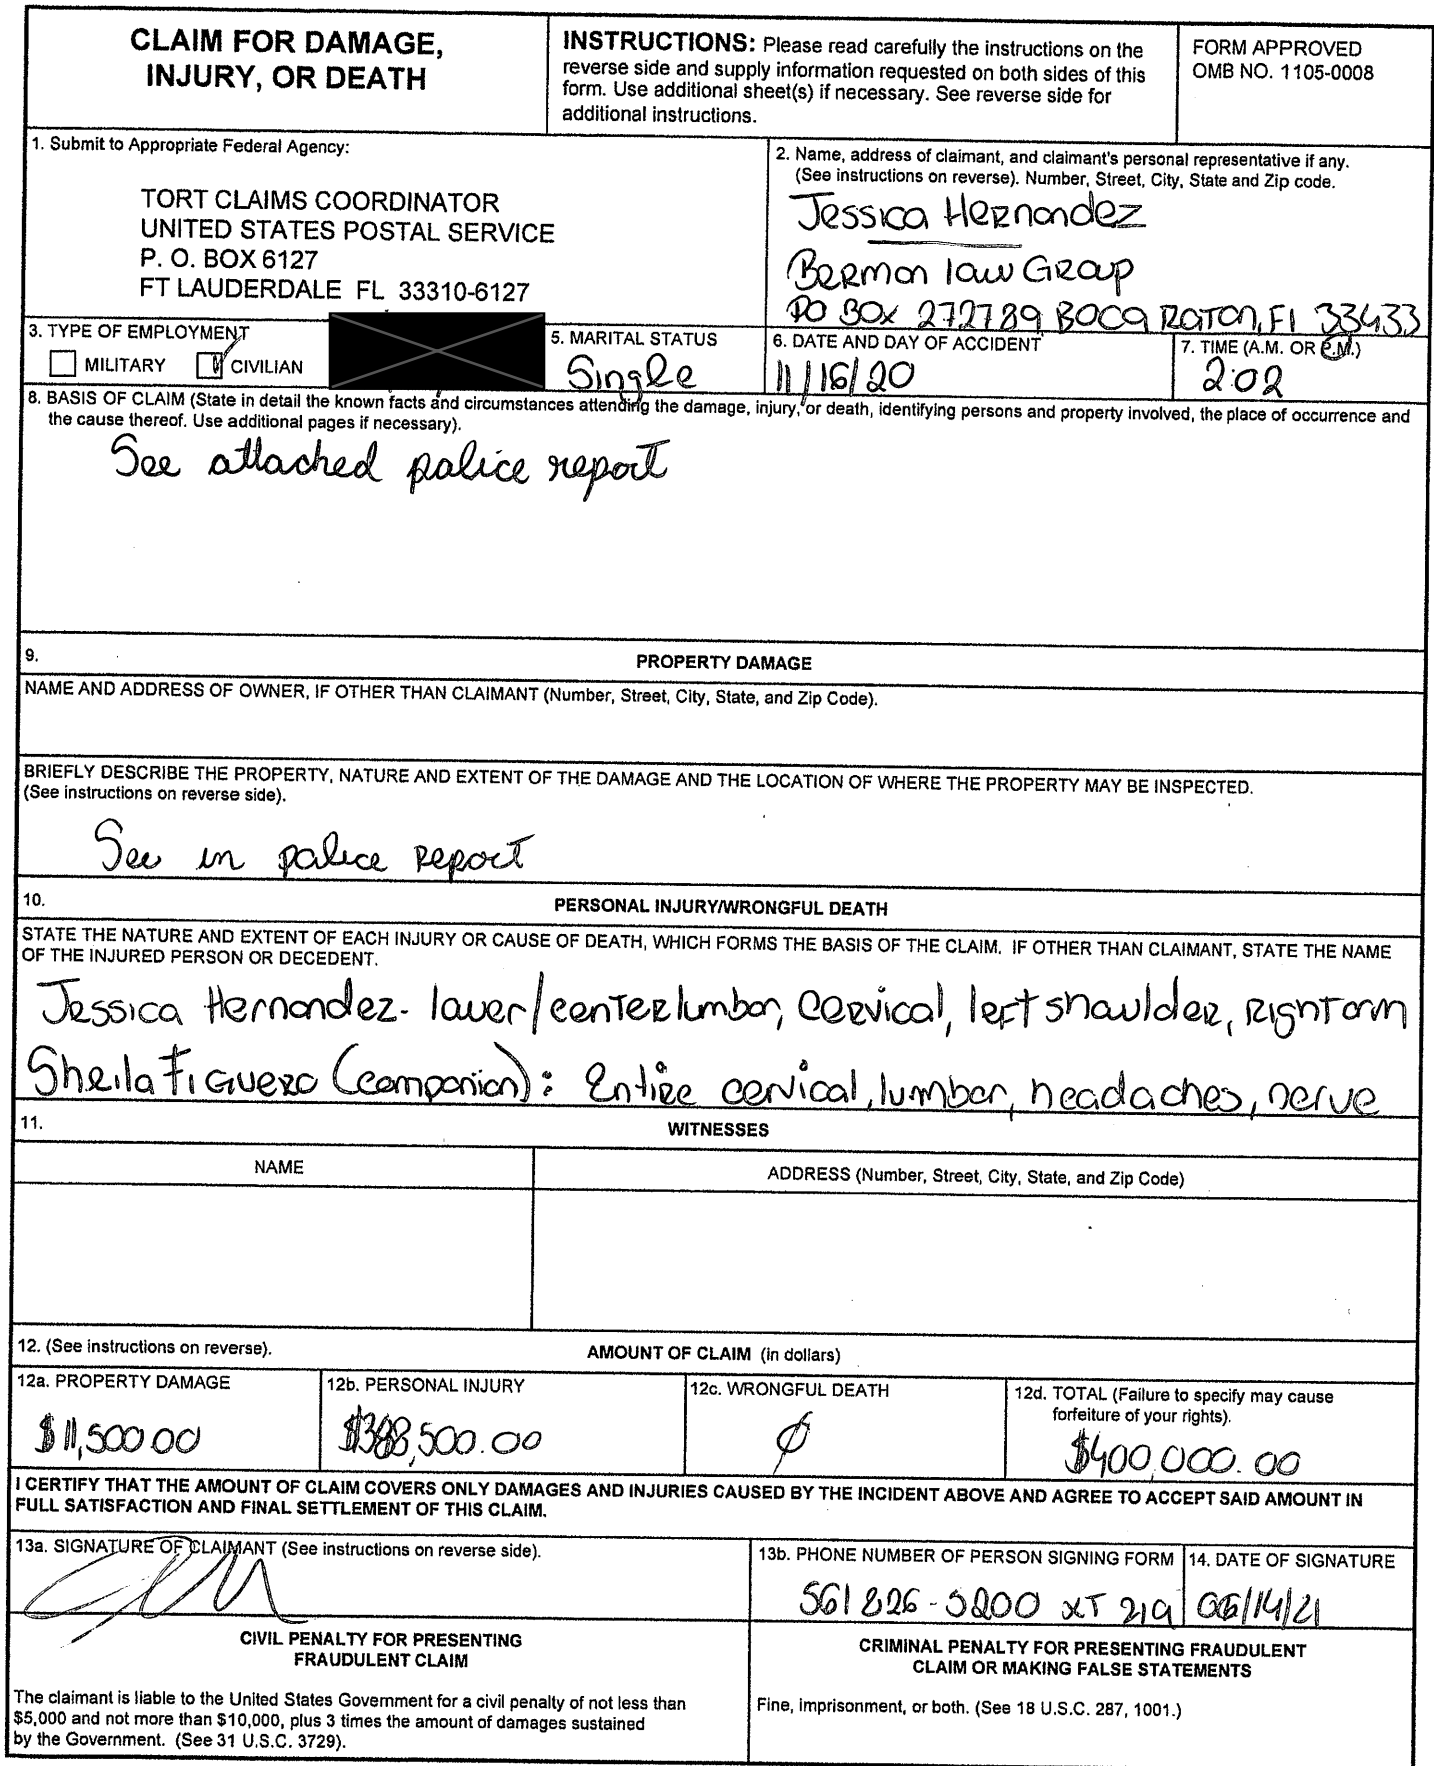 CLAIM FOR DAMAGE,
INJURY, OR DEATH
INSTRUCTIONS: Please read carefully the instructions on the
reverse side and supply information requested on both sides of this
form. Use additional sheet(s) if necessary. See reverse side for
additional instructions.
FORM APPROVED
OMB NO. 1105-0008
1. Submit to Appropriate Federal Agency:
TORT CLAIMS COORDINATOR
UNITED STATES POSTAL SERVICE
P. O. BOX 6127
FT LAUDERDALE FL 33310-6127
2. Name, address of claimant, and claimant's personal representative if any.
(See instructions on reverse). Number, Street, City, State and Zip code.
Jessica Hernandez
Berman law Group
PO BOX 272789 BOCA RATON, Fl 33433
3. TYPE OF EMPLOYMENT
MILITARY
CIVILIAN
5. MARITAL STATUS
Single
6. DATE AND DAY OF ACCIDENT
11/16/20
7. TIME (A.M. OR P.M.)
2:02
8. BASIS OF CLAIM (State in detail the known facts and circumstances attending the damage, injury, or death, identifying persons and property involved, the place of occurrence and
the cause thereof. Use additional pages if necessary).
See attached police report
9.
PROPERTY DAMAGE
NAME AND ADDRESS OF OWNER, IF OTHER THAN CLAIMANT (Number, Street, City, State, and Zip Code).
BRIEFLY DESCRIBE THE PROPERTY, NATURE AND EXTENT OF THE DAMAGE AND THE LOCATION OF WHERE THE PROPERTY MAY BE INSPECTED.
(See instructions on reverse side).
See in police report
10.
PERSONAL INJURY/WRONGFUL DEATH
STATE THE NATURE AND EXTENT OF EACH INJURY OR CAUSE OF DEATH, WHICH FORMS THE BASIS OF THE CLAIM. IF OTHER THAN CLAIMANT, STATE THE NAME
OF THE INJURED PERSON OR DECEDENT.
Jessica Hernandez- lower/center lumbar, cervical, left shoulder, right arm
Sheila Figuero (companion): Entire cervical, lumbar, headaches, nerve
11.
WITNESSES
NAME
ADDRESS (Number, Street, City, State, and Zip Code)
12. (See instructions on reverse).
AMOUNT OF CLAIM (in dollars)
12a. PROPERTY DAMAGE
$11,500.00
12b. PERSONAL INJURY
$388,500.00
12c. WRONGFUL DEATH
12d. TOTAL (Failure to specify may cause
forfeiture of your rights).
$400,000.00
I CERTIFY THAT THE AMOUNT OF CLAIM COVERS ONLY DAMAGES AND INJURIES CAUSED BY THE INCIDENT ABOVE AND AGREE TO ACCEPT SAID AMOUNT IN
FULL SATISFACTION AND FINAL SETTLEMENT OF THIS CLAIM.
13a. SIGNATURE OF CLAIMANT (See instructions on reverse side).
13b. PHONE NUMBER OF PERSON SIGNING FORM
561 826-5200 XT 219
14. DATE OF SIGNATURE
06/14/21
CIVIL PENALTY FOR PRESENTING
FRAUDULENT CLAIM
The claimant is liable to the United States Government for a civil penalty of not less than
$5,000 and not more than $10,000, plus 3 times the amount of damages sustained
by the Government. (See 31 U.S.C. 3729).
CRIMINAL PENALTY FOR PRESENTING FRAUDULENT
CLAIM OR MAKING FALSE STATEMENTS
Fine, imprisonment, or both. (See 18 U.S.C. 287, 1001.)